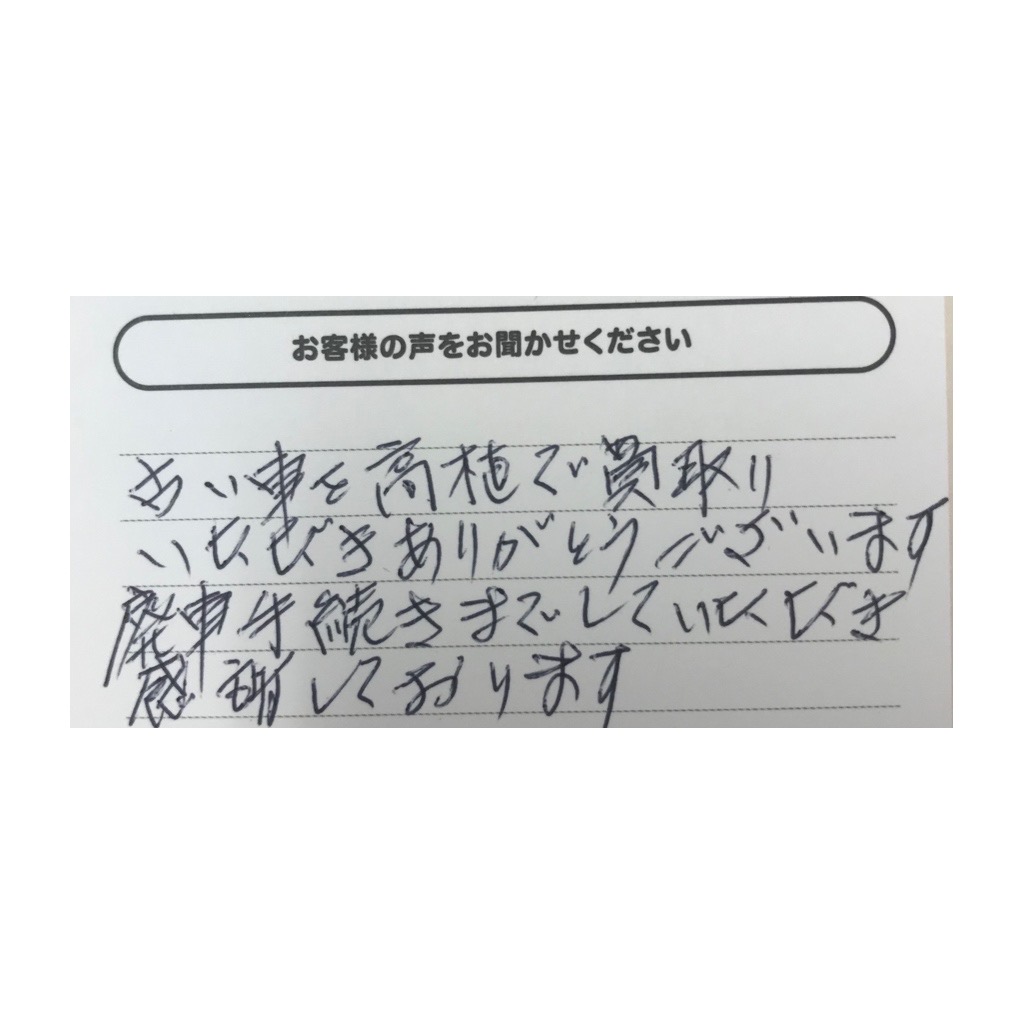 お客様の声をお聞かせください
古い車を高値で買取り
いただきありがとうございます
廃車手続きまでしていただき
感謝しております